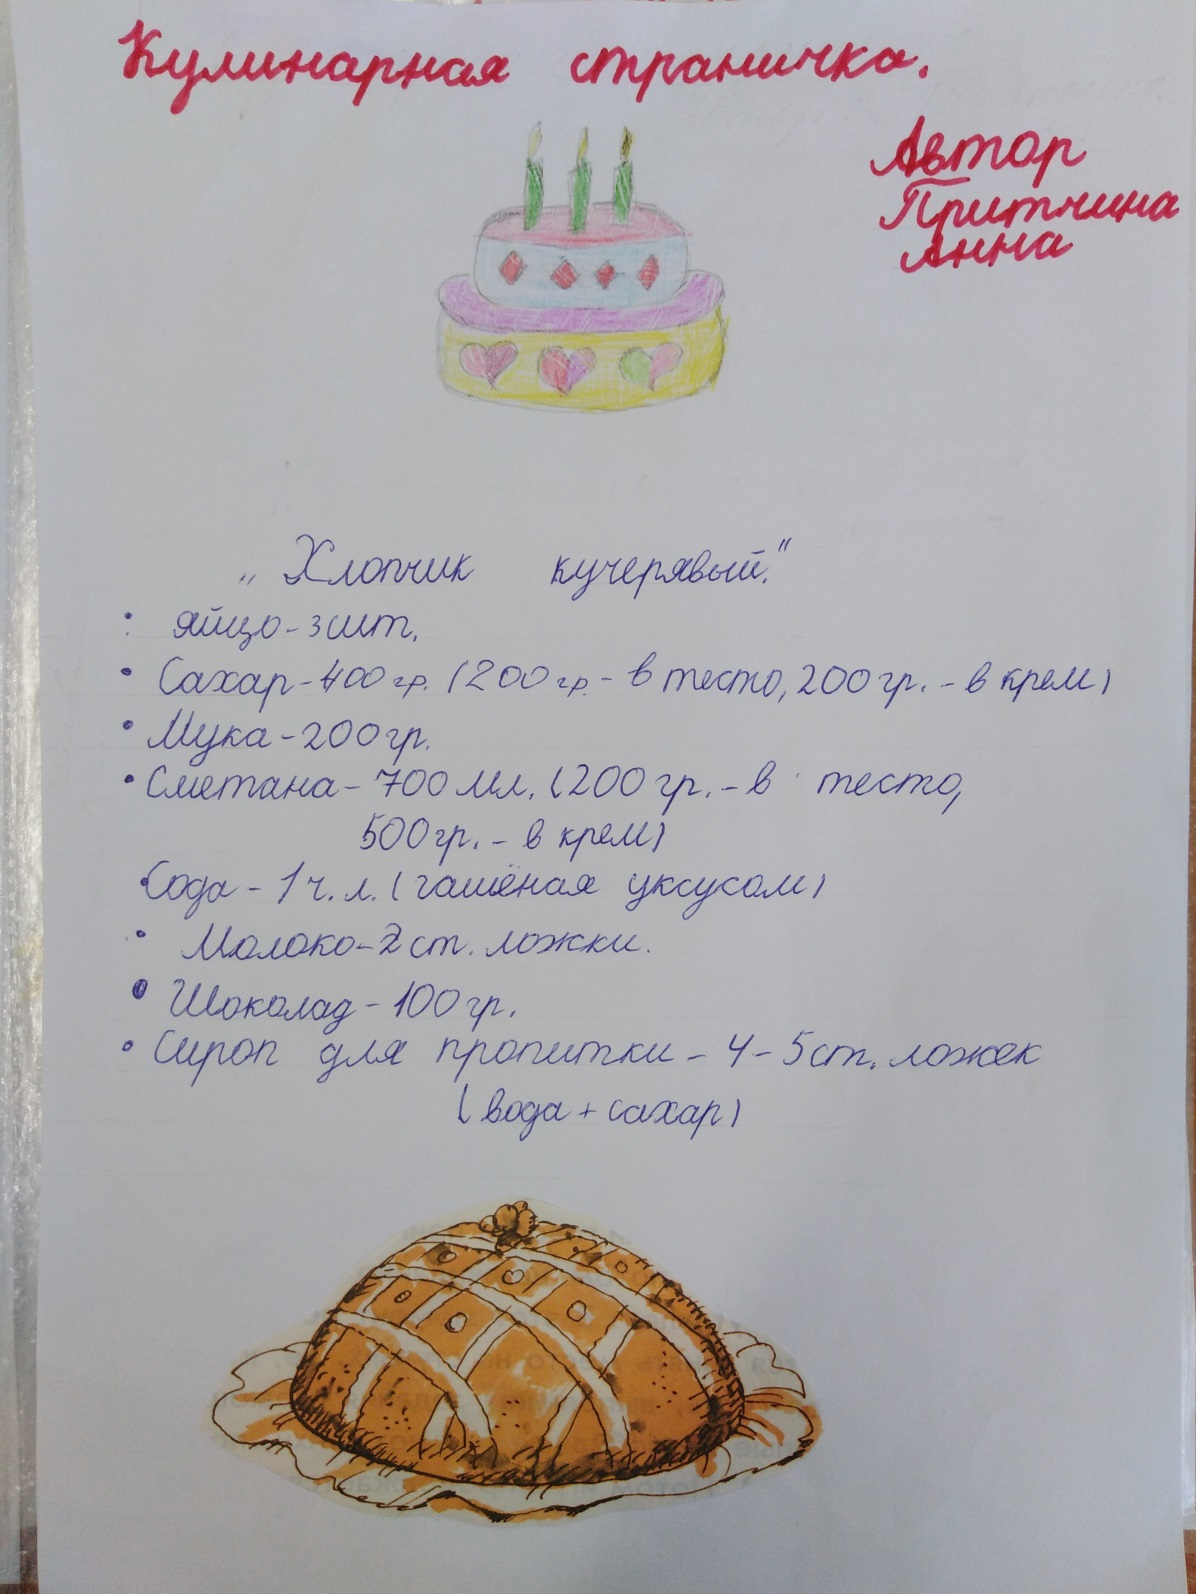 Кулинарная страничка.
Автор
Притчина
Анна
„Хлопчик кучерявый."
• яйцо - 3 шт.
• Сахар - 400 гр. (200 гр. - в тесто, 200 гр. - в крем)
• Мука - 200 гр.
• Сметана - 700 мл. (200 гр. - в тесто,
500 гр. - в крем)
• Сода - 1 ч. л. (гашёная уксусом)
• Молоко - 2 ст. ложки.
• Шоколад - 100 гр.
• Сироп для пропитки - 4 - 5 ст. ложек
(вода + сахар)